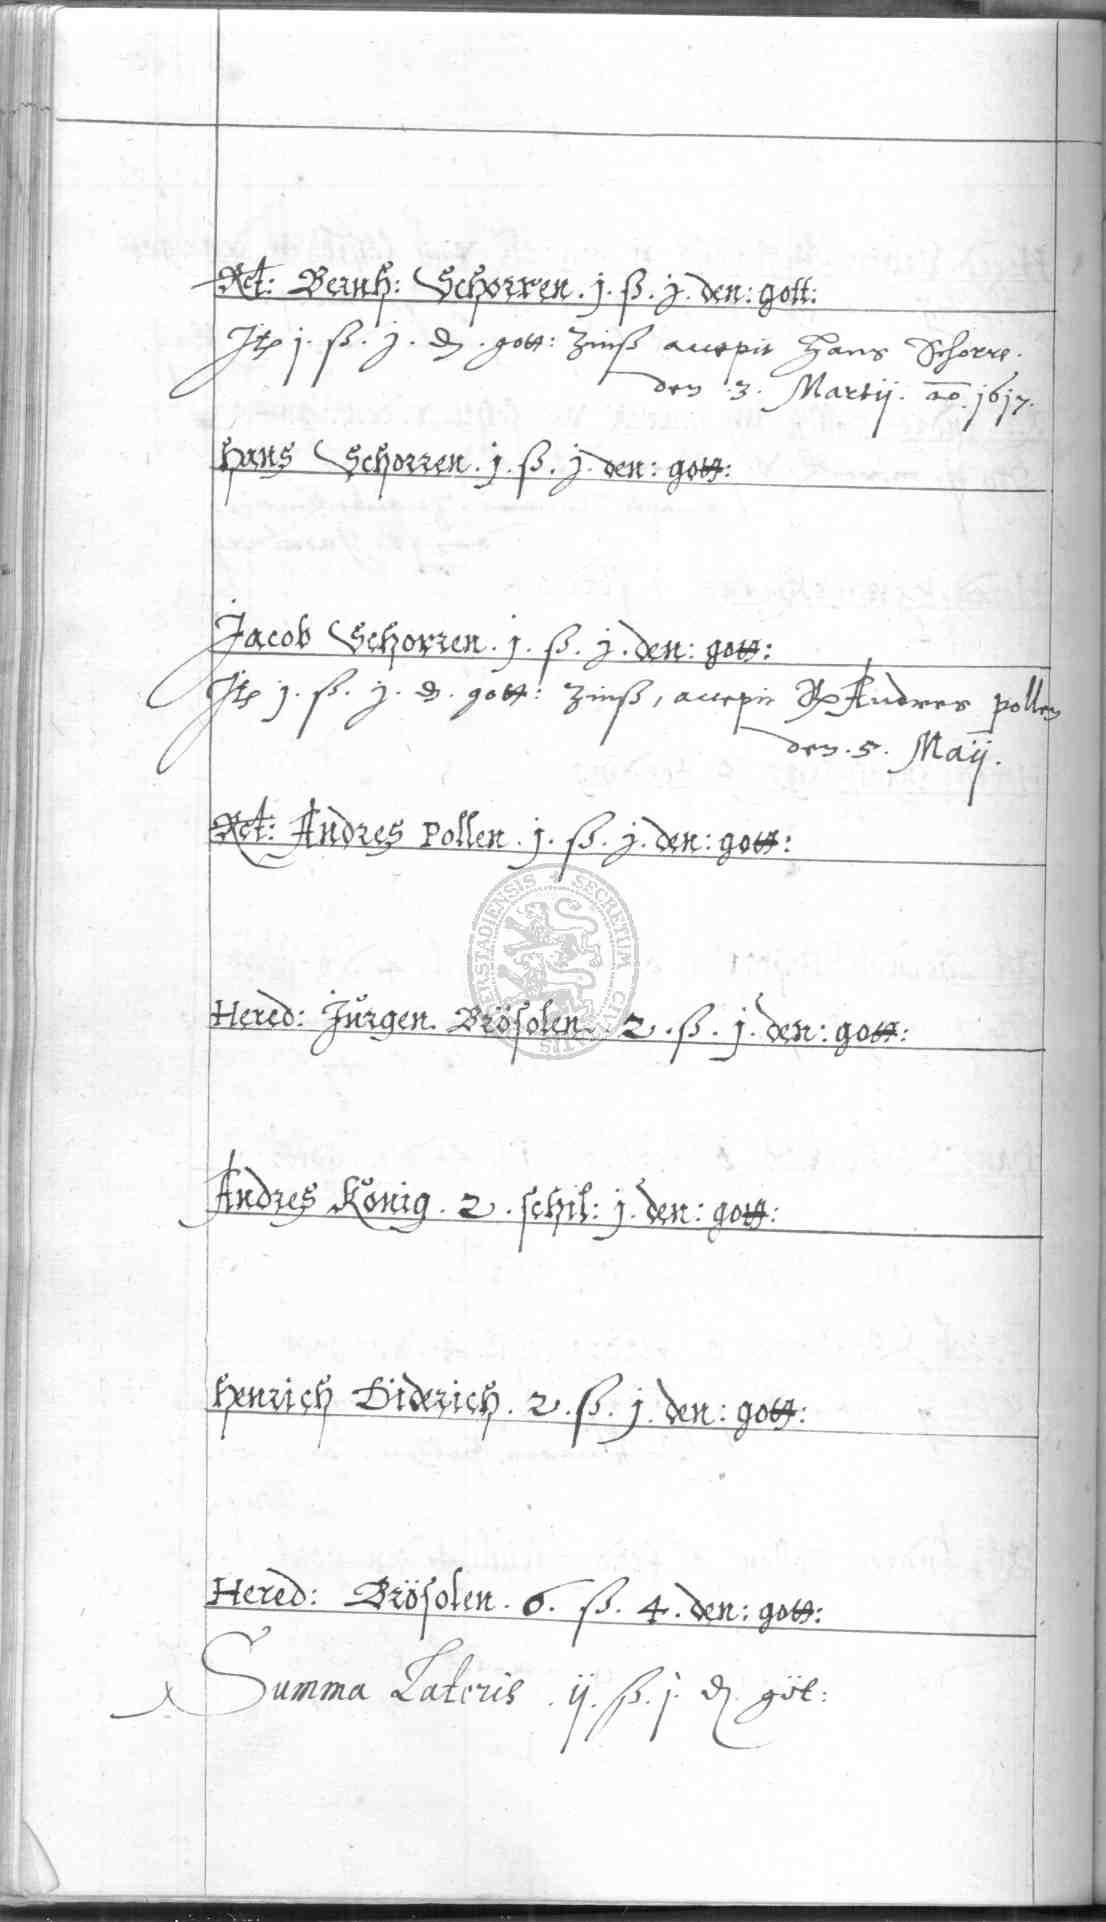 Rct: Bernh: Schorren. j. ß. j. den: gott:
Itp j. ß. j. d. gott: Zinß accepit Hans Schorre.
den 3. Martij. ao. 1617.
Hans Schorren. j. ß. j. den: gott:
Jacob Schorren. j. ß. j. den: gott:
Itp j. ß. j. d. gott: Zinß, accepit Andres pollen
den. 5. Maij.
Rct: Andres Pollen. j. ß. j. den: gott:
SECRETUM CIVITATIS
Hered: Jürgen. Brösolen. 2. ß. j. den: gott:
Andres König. 2. schil: j. den: gott:
Henrich Diderich. 2. ß. j. den: gott:
Hered: Brösolen. 6. ß. 4. den: gott:
Summa Lateris ij. ß. j. d. göt: